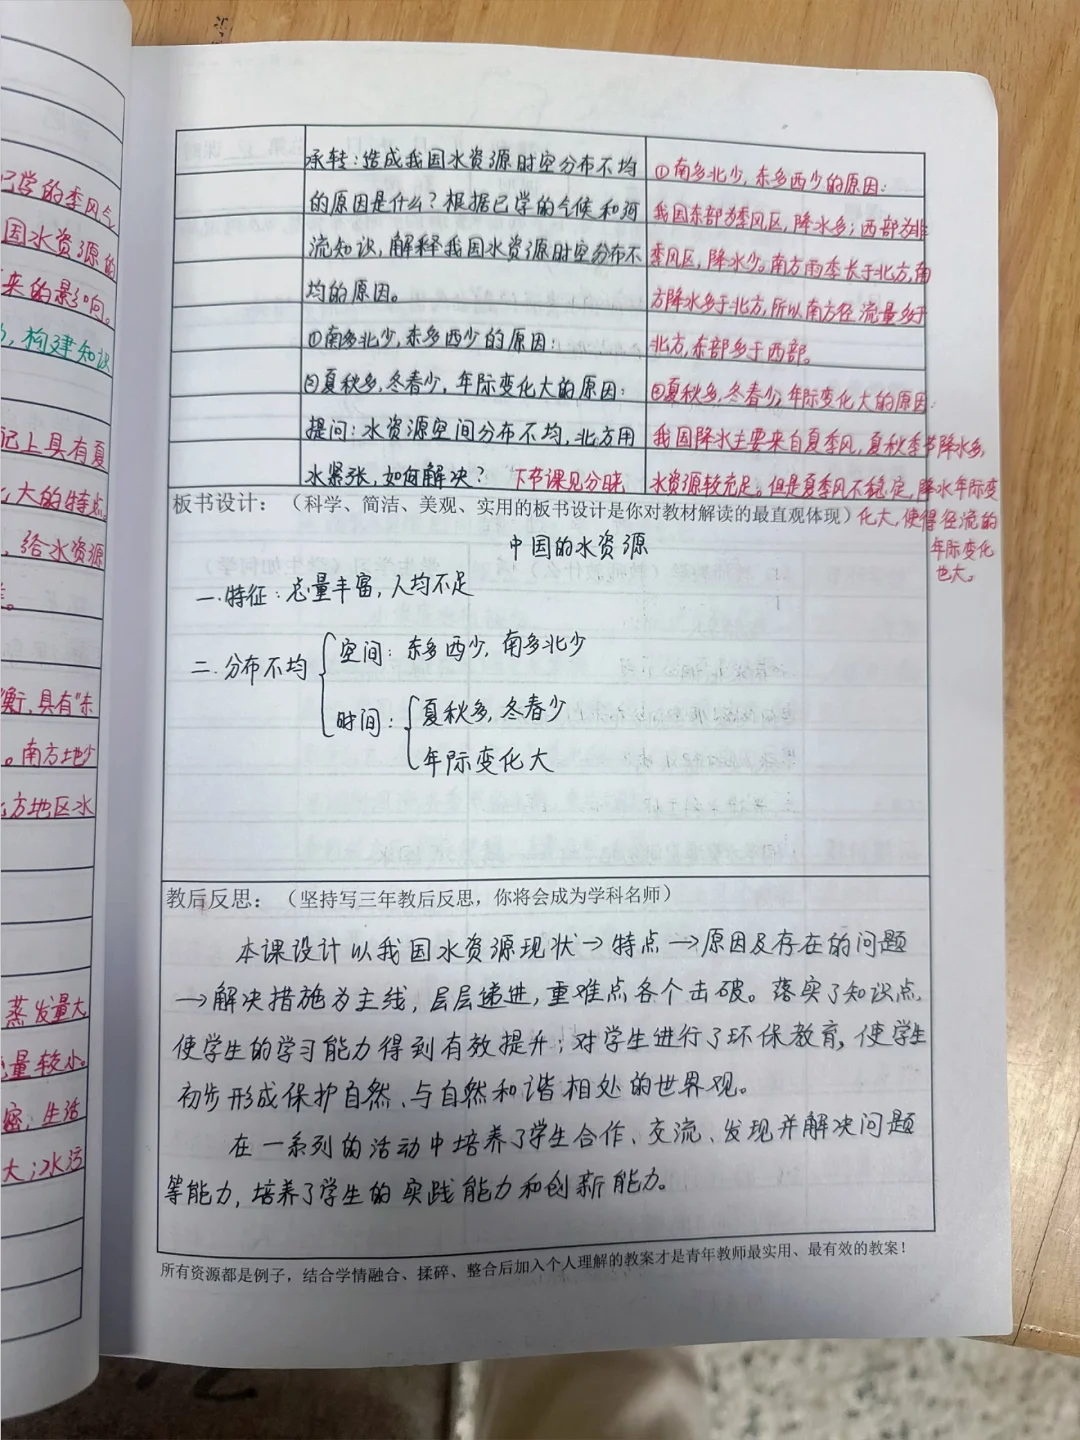 已学的季风气
国水资源的
来的影响。
构建知识
记上具有夏
大的特点。
给水资源
衡,具有"东
。南方地少
方地区水
蒸发量大
量较小。
密,生活
大;水污
承转:造成我国水资源时空分布不均
的原因是什么?根据已学的气候和河
流知识,解释我国水资源时空分布不
均的原因。
①南多北少,东多西少的原因:
②夏秋多,冬春少,年际变化大的原因:
提问:水资源空间分布不均,北方用
水紧张,如何解决? 下节课见分晓
①南多北少,东多西少的原因:
我国东部为季风区,降水多;西部为非
季风区,降水少。南方雨季长于北方,南
方降水多于北方,所以南方径流量多于
北方,东部多于西部。
②夏秋多,冬春少,年际变化大的原因:
我国降水主要来自夏季风,夏秋季节降水多,
水资源较充足。但是夏季风不稳定,降水年际变
化大,使得径流的
年际变化
也大。
板书设计:(科学、简洁、美观、实用的板书设计是你对教材解读的最直观体现)
中国的水资源
一.特征:总量丰富,人均不足
二.分布不均
空间:东多西少,南多北少
时间:夏秋多,冬春少
年际变化大
教后反思:(坚持写三年教后反思,你将会成为学科名师)
本课设计以我国水资源现状→特点→原因及存在的问题
→解决措施为主线,层层递进,重难点各个击破。落实了知识点,
使学生的学习能力得到有效提升;对学生进行了环保教育,使学生
初步形成保护自然、与自然和谐相处的世界观。
在一系列的活动中培养了学生合作、交流、发现并解决问题
等能力,培养了学生的实践能力和创新能力。
所有资源都是例子,结合学情融合、揉碎、整合后加入个人理解的教案才是青年教师最实用、最有效的教案!